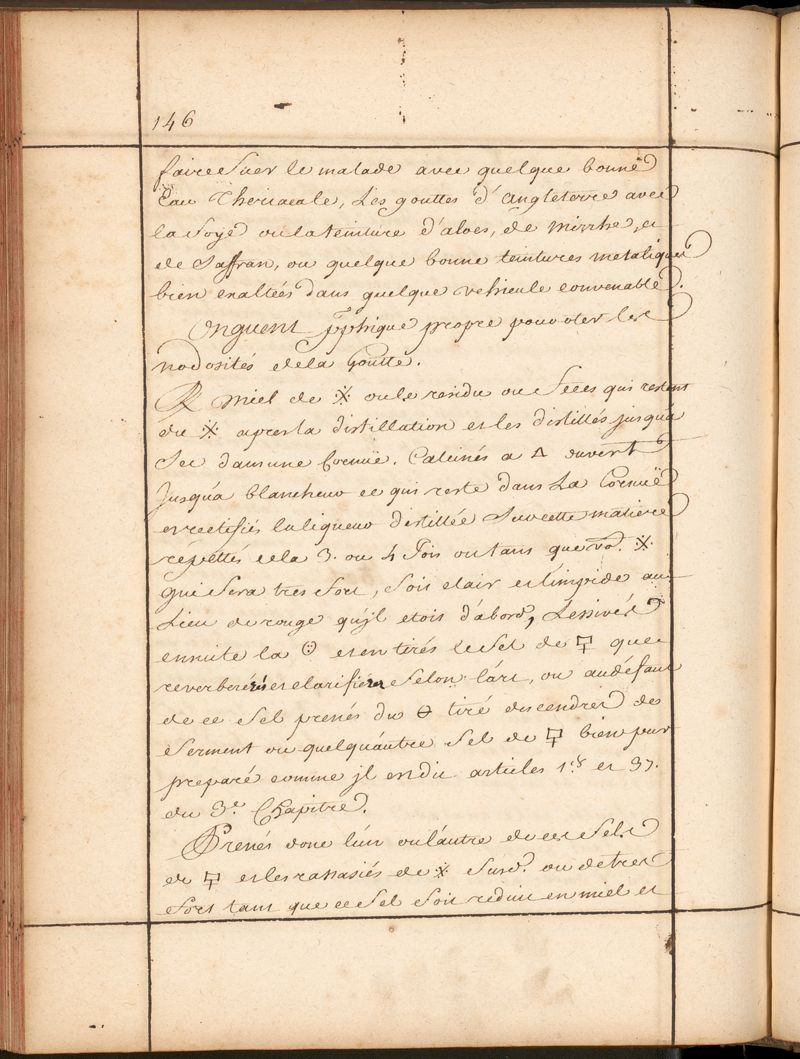 146
faire Suer le malade avec quelque bonne
Eau Theriacale, Les gouttes d'angleterre avec
la Soye ou la teinture d'aloes, de mirrhe, et
de Saffran, ou quelque bonne teintures metaliques
bien exaltées dans quelque vehicule convenable.
Onguent propre pour oter les
nodosités de la Goutte.
℞ miel de ⁜ ou le residu ou feces qui restent
du ⁜ apres la distillation et les distillés jusqu'a
Sec dans une Cornuë. Calcinés a 🜂 ouvert
Jusqu'a blancheur ce qui reste dans La Cornuë
et rectifiés la liqueur distillée Sur cette matiere
repettés cela 3. ou 4 fois ou tant que vo.e ⁜
qui Sera tres fort, Soit clair et limpide au
Lieu de rouge qu'jl etoit d'abord, Lessivés
ensuite la ☉ et en tirés le Sel de 🜿 que
reverbererés et clarifierés Selon l'art, ou au défaut
de ce Sel prenés du 🜔 tiré des cendres des
Serment ou quelqu'autre Sel de 🜿 bien pur
preparé comme jl en dit articles 1.er et 37.
du 3.e Chapitre.
Prenés donc l'un ou l'autre de ces Sels
de 🜿 et les rassasiés de ⁜ Susd.t ou de tres
fort tant que ce Sel Soit reduit en miel et